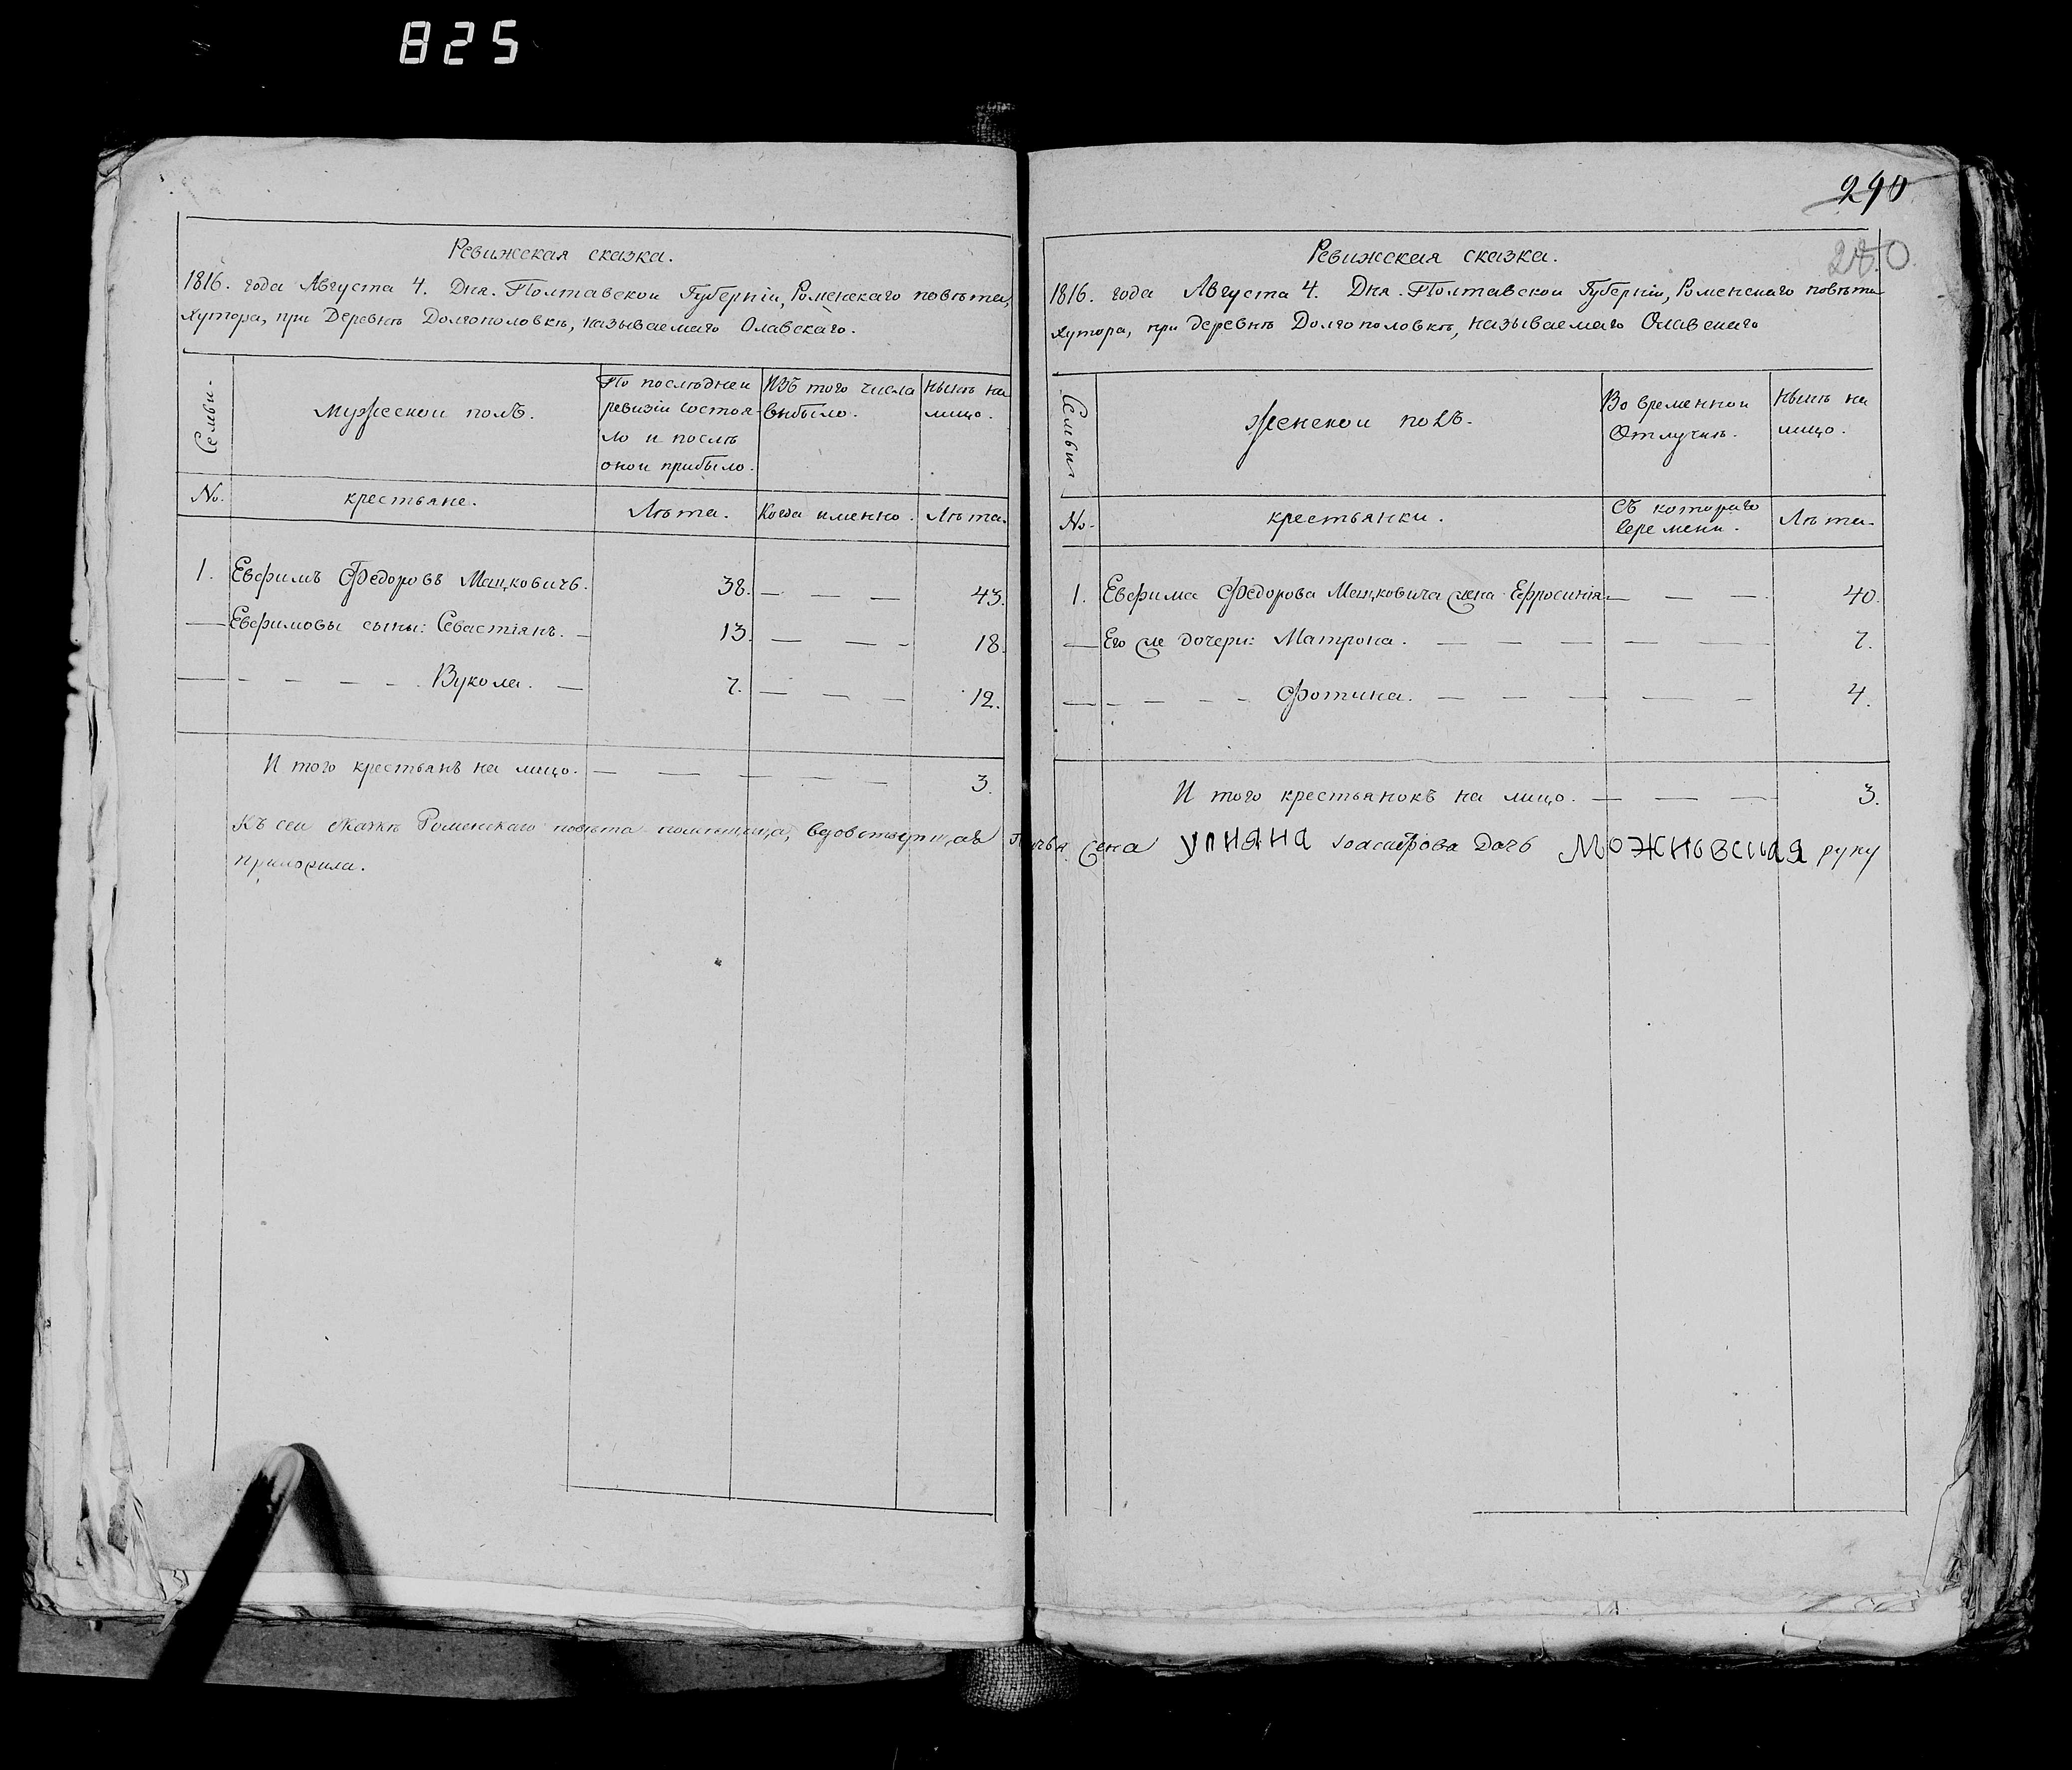 825
Ревижская сказка.
1816. года Августа 4. Дня. Полтавской Губерніи, Роменскаго повѣта,
Хутора, при Деревнѣ Долгополовкѣ, называемаго Олавскаго.
Семьи.
Мужеской полъ.
По последней ревизіи состояло и послѣ оной прибыло.
Изъ того числа выбыло.
Нынѣ на лицо.
No.
крестьяне.
Лѣта.
Когда именно.
Лѣта.
1. Евфимъ Федоровъ Мацковичъ. 38. — — — 43.
— Евфимовы сыны: Севастіянъ. — 13. — — — 18.
— — — — — Вукола. — 7. — — — 12.
И того крестьянъ на лицо. — — — — — 3.
290
280.
Ревижская сказка.
1816. года Августа 4. Дня. Полтавской Губерніи, Роменскаго повѣта
Хутора, при деревнѣ Долгополовкѣ, называемаго Олавскаго
Семьи
Женской полъ.
Во временной Отлучкѣ.
Нынѣ на лицо.
No.
крестьянки.
Съ котораго времени.
Лѣта.
1. Евфима Федорова Мацковича жена Ефросинія — — — 40.
— Его же дочери: Матрона. — — — — — — 7.
— — — — — Фотина. — — — — — — 4.
И того крестьянокъ на лицо. — — — 3.
Къ сей сказкѣ Роменскаго повѣта помещица, жена Улияна дочь руку
приложила.